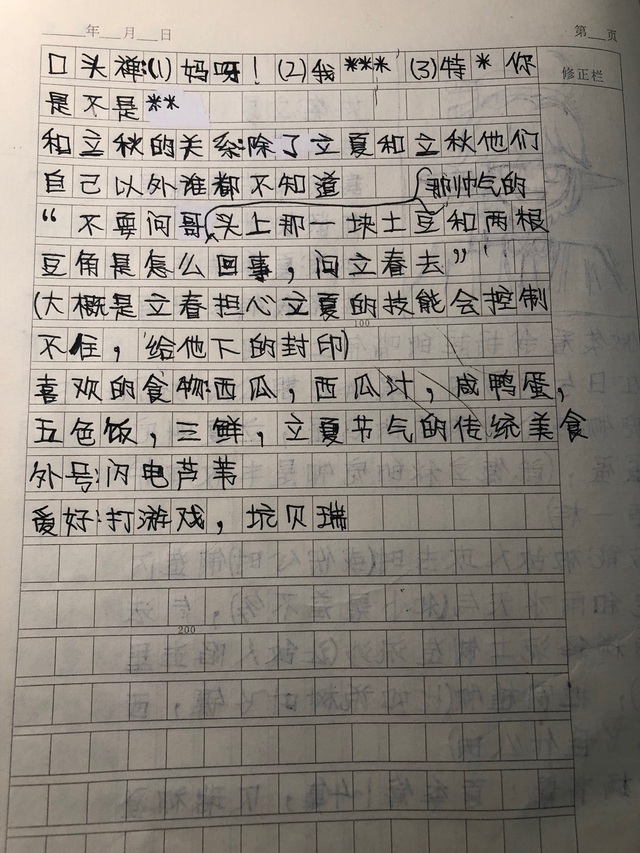 年 月 日 第 页
修正栏
口头禅:(1)妈呀！(2)我*** (3)特*你
是不是**
和立秋的关系:除了立夏和立秋他们
自己以外谁都不知道
那帅气的
“不要问哥头上那一块土豆和两根
豆角是怎么回事，问立春去”
(大概是立春担心立夏的技能会控制
100
不住，给他下的封印)
喜欢的食物:西瓜，西瓜汁，咸鸭蛋，
五色饭，三鲜，立夏节气的传统美食
外号:闪电芦苇
爱好:打游戏，坑贝瑞
200